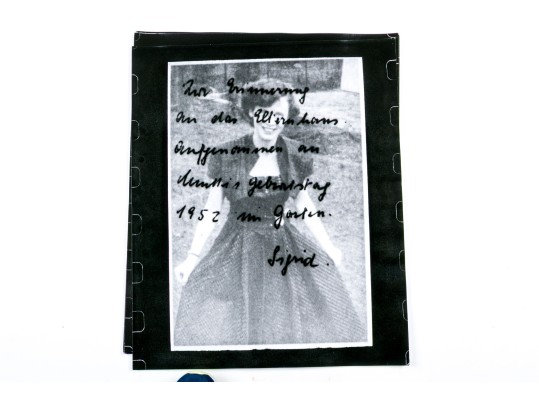 Zur Erinnerung
an das Elternhaus.
Aufgenommen an
Geburtstag
1952 im Garten.
Sigrid.